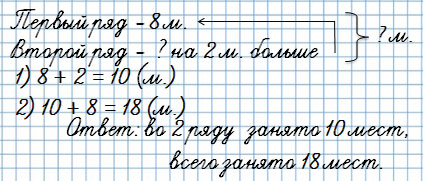 Первый ряд – 8 м.
? м.
Второй ряд – ? на 2 м. больше
1) 8 + 2 = 10 (м.)
2) 10 + 8 = 18 (м.)
Ответ: во 2 ряду занято 10 мест,
всего занято 18 мест.